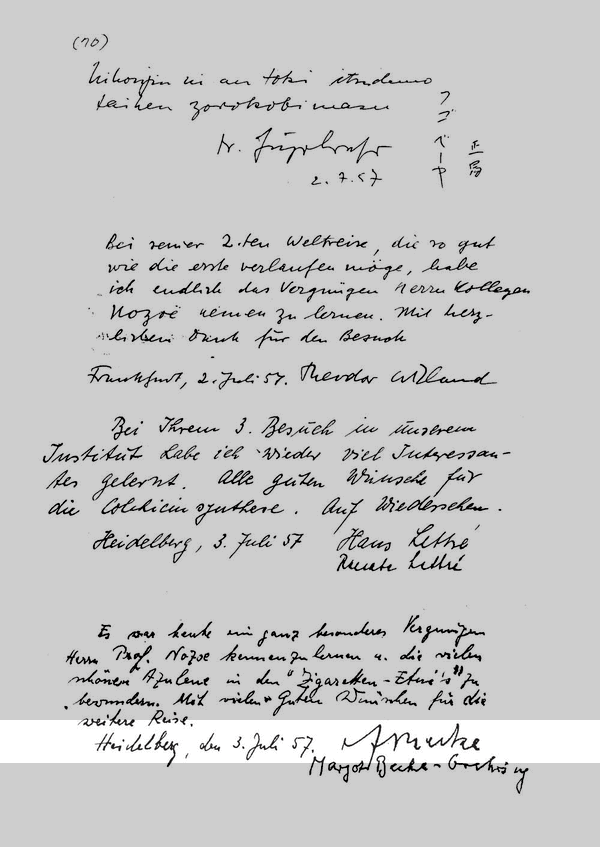 (70)
Nihonjin ni au toki itsudemo
taihen zorokobimasu
Dr.
2.7.57
フゴベーヤ
正
Bei seiner 2.ten Weltreise, die so gut
wie die erste verlaufen möge, habe
ich endlich das Vergnügen Herrn Kollegen
Nozoë kennen zu lernen. Mit herz-
lichem Dank für den Besuch
Frankfurt, 2. Juli 57. Theodor Wieland
Bei Ihrem 3. Besuch in unserem
Institut habe ich wieder viel Interessan-
tes gelernt. Alle guten Wünsche für
die Colchicinsynthese. Auf Wiedersehen.
Heidelberg, 3. Juli 57 Hans Lettré
Renate Lettré
Es war heute ein ganz besonderes Vergnügen
Herrn Prof. Nozoe kennenzulernen u. die vielen
schönen Azulene in den "Zigaretten-Etui's" zu
bewundern. Mit vielen Guten Wünschen für die
weitere Reise.
Heidelberg, den 3. Juli 57.
Margot Becke-Goehring